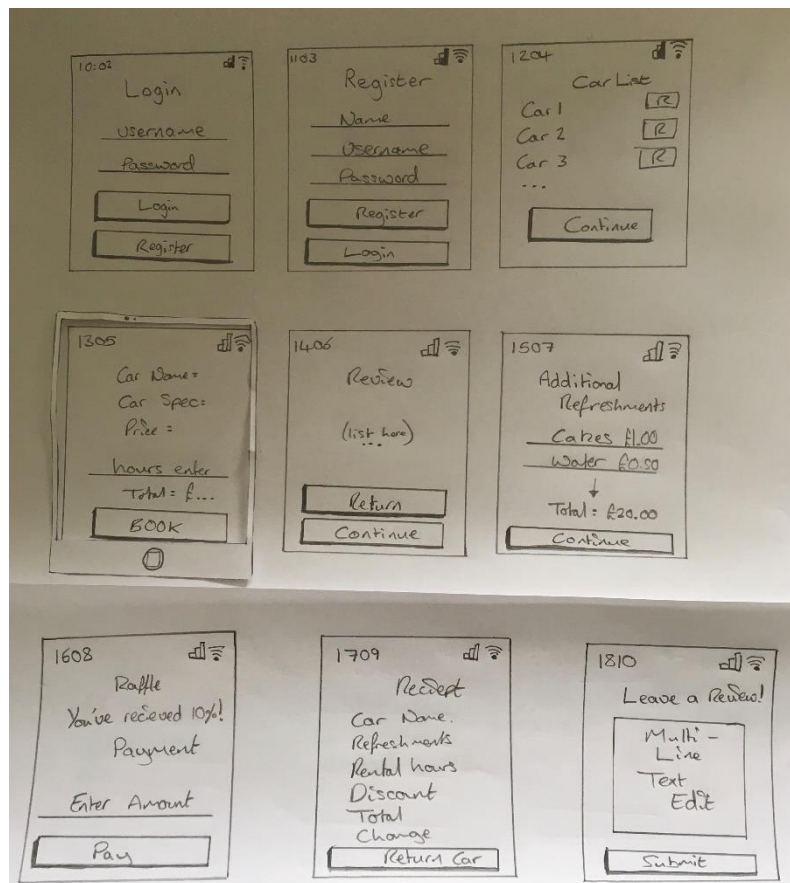 10:02
Login
Username
Password
Login
Register
1103
Register
Name
Username
Password
Register
Login
1204
Car List
Car 1 R
Car 2 R
Car 3 R
...
Continue
1305
Car Name =
Car Spec:
Price =
hours enter
Total = £...
BOOK
1406
Review
(list here)
...
Return
Continue
1507
Additional
Refreshments
Cakes £1.00
Water £0.50
Total: £20.00
Continue
1608
Raffle
You've recieved 10%!
Payment
Enter Amount
Pay
1709
Reciept
Car Name.
Refreshments
Rental hours
Discount
Total
Change
Return Car
1810
Leave a Review!
Multi-
Line
Text
Edit
Submit